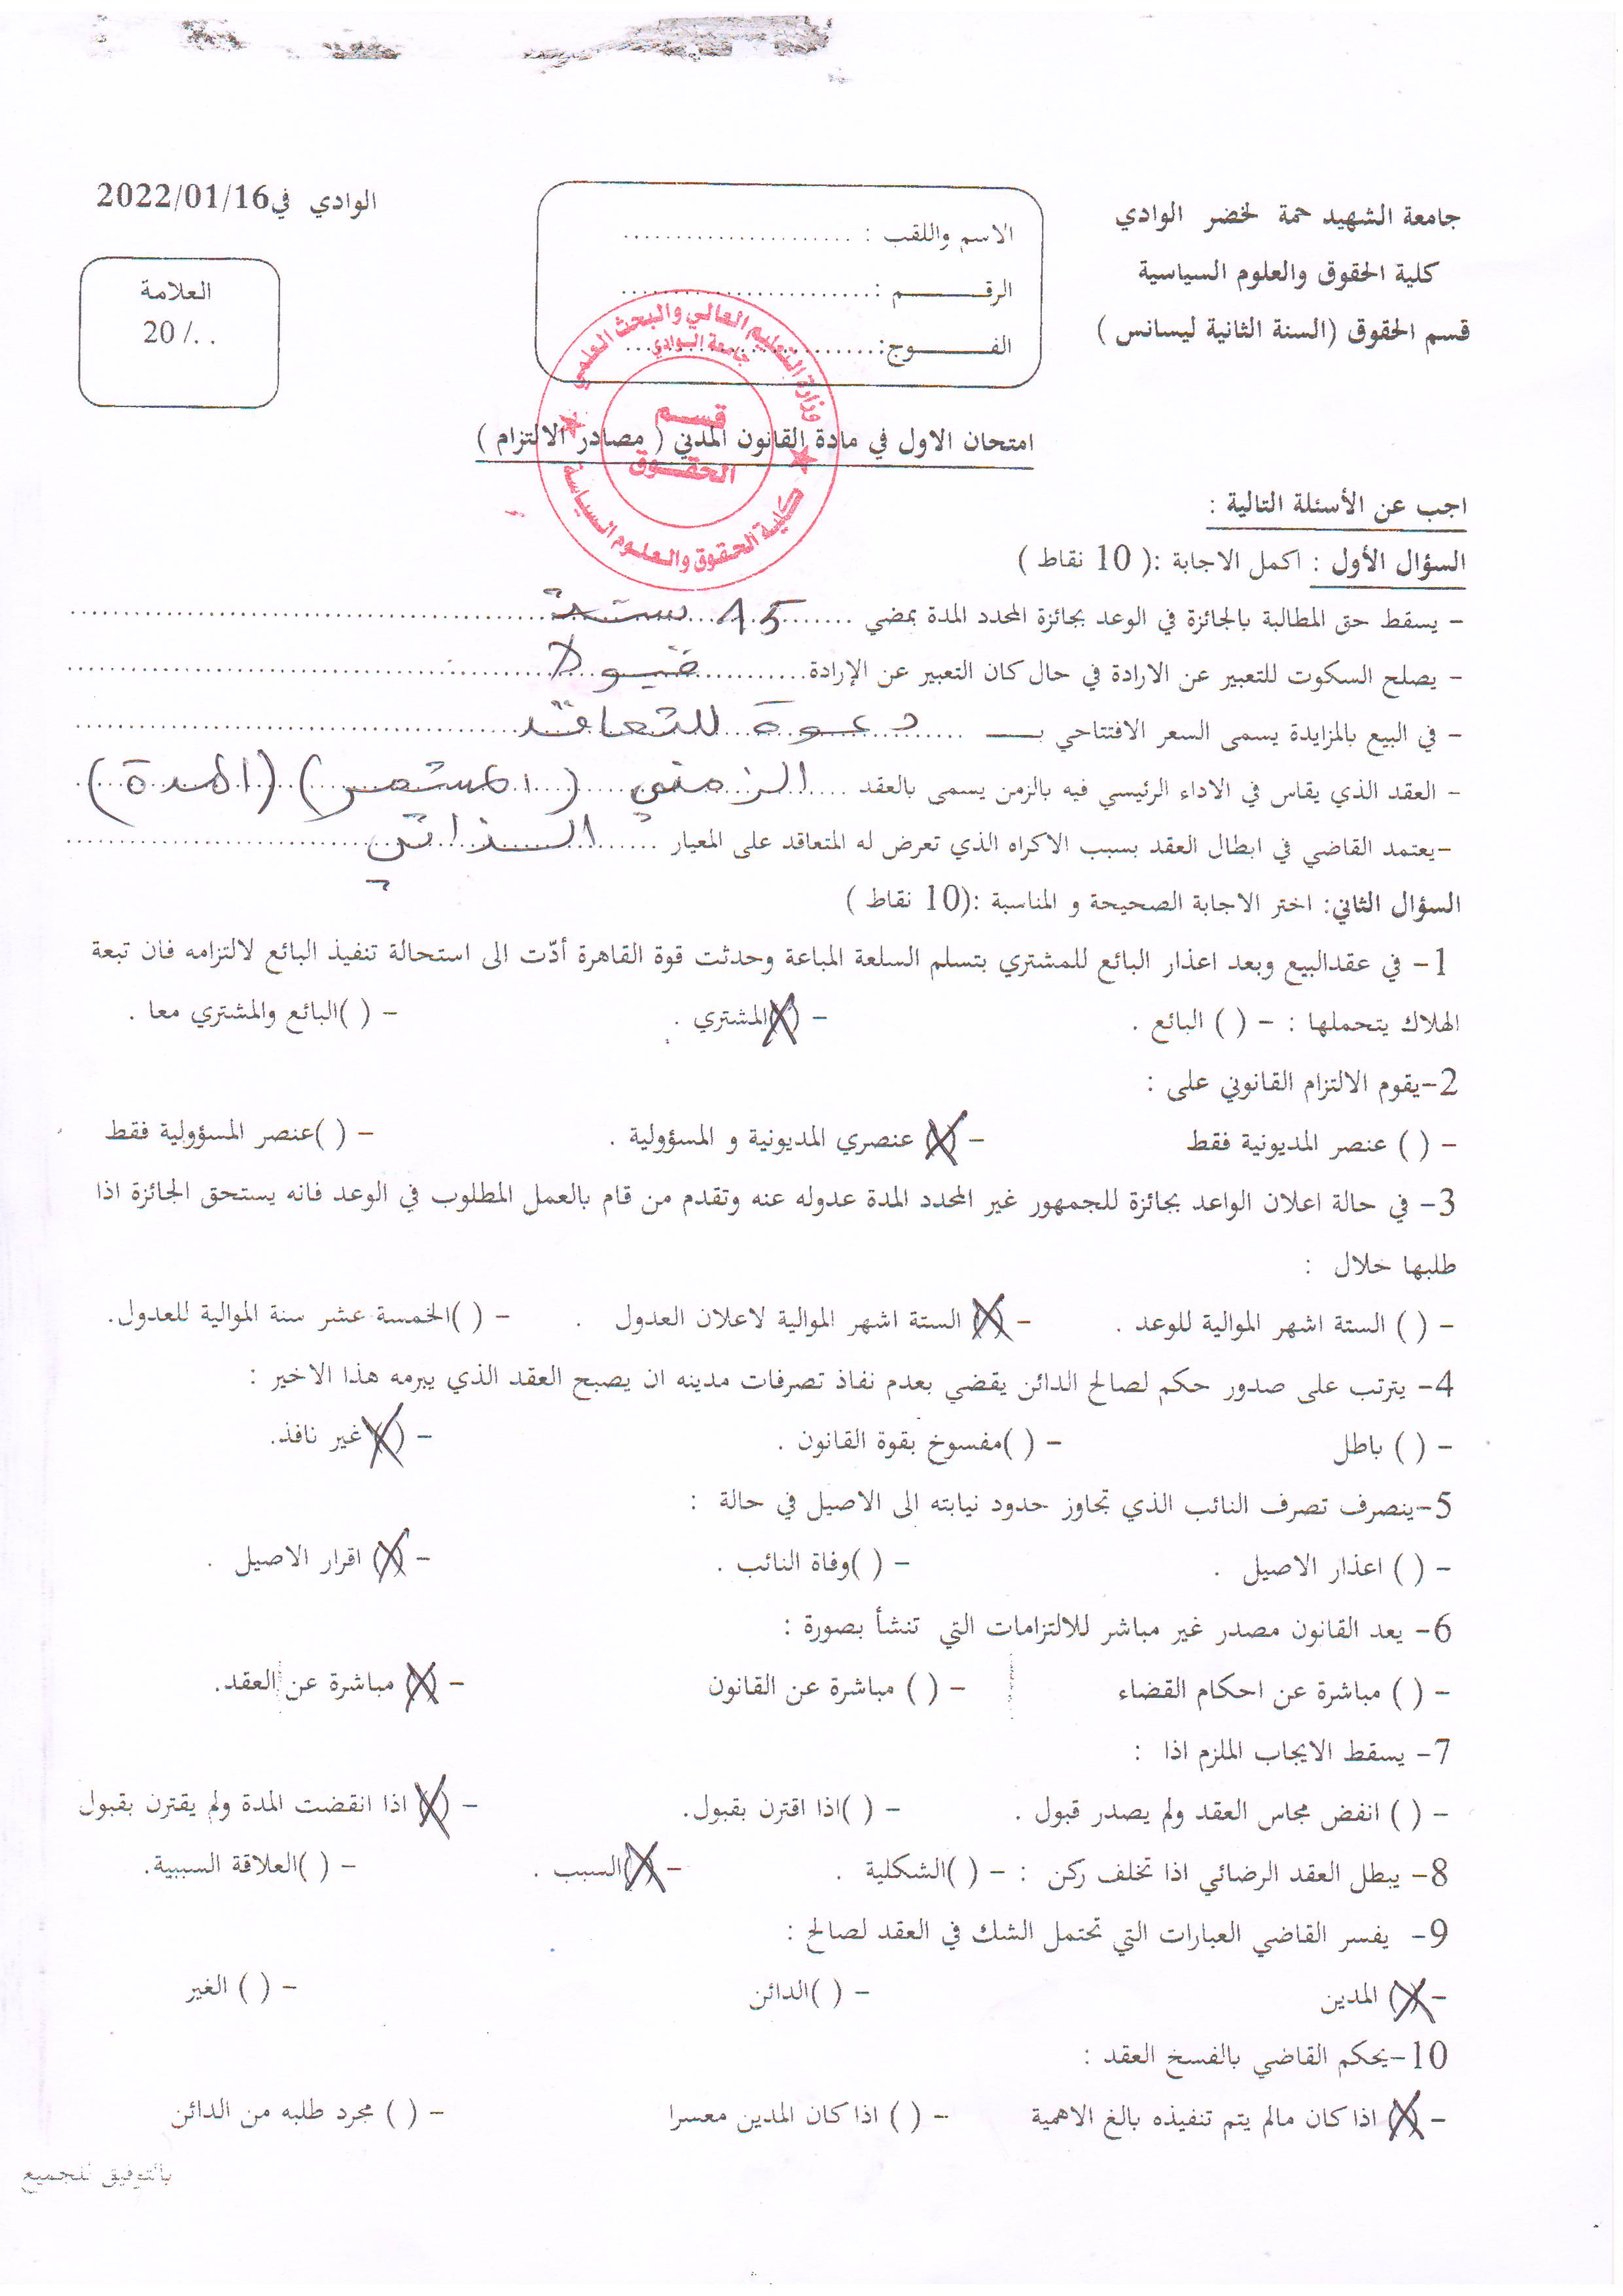 جامعة الشهيد حمة لخضر الوادي
كلية الحقوق والعلوم السياسية
قسم الحقوق (السنة الثانية ليسانس )
الاسم واللقب : ......................
الرقـــــــم :.........................
الفــــــوج:.........................
الوادي في2022/01/16
العلامة
20 /. .
وزارة التعليم العالي والبحث العلمي
جامعة الوادي
قسم
الحقوق
كلية الحقوق والعلوم السياسية
امتحان الاول في مادة القانون المدني ( مصادر الالتزام )
اجب عن الأسئلة التالية :
السؤال الأول : اكمل الاجابة :( 10 نقاط )
- يسقط حق المطالبة بالجائزة في الوعد بجائزة المحدد المدة بمضي ........ 15 سنة ........
- يصلح السكوت للتعبير عن الارادة في حال كان التعبير عن الإرادة........ قبولا ........
- في البيع بالمزايدة يسمى السعر الافتتاحي بـــــ ........ دعوة للتعاقد ........
- العقد الذي يقاس في الاداء الرئيسي فيه بالزمن يسمى بالعقد ..... الزمني (المستمر) (المدة)
-يعتمد القاضي في ابطال العقد بسبب الاكراه الذي تعرض له المتعاقد على المعيار ...... الذاتي ........
السؤال الثاني: اختر الاجابة الصحيحة و المناسبة :(10 نقاط )
1- في عقدالبيع وبعد اعذار البائع للمشتري بتسلم السلعة المباعة وحدثت قوة القاهرة أدّت الى استحالة تنفيذ البائع لالتزامه فان تبعة
الهلاك يتحملها : - ( ) البائع . - (X)المشتري . - ( )البائع والمشتري معا .
2-يقوم الالتزام القانوني على :
- ( ) عنصر المديونية فقط - (X) عنصري المديونية و المسؤولية . - ( )عنصر المسؤولية فقط
3- في حالة اعلان الواعد بجائزة للجمهور غير المحدد المدة عدوله عنه وتقدم من قام بالعمل المطلوب في الوعد فانه يستحق الجائزة اذا
طلبها خلال :
- ( ) الستة اشهر الموالية للوعد . - (X) الستة اشهر الموالية لاعلان العدول . - ( )الخمسة عشر سنة الموالية للعدول.
4- يترتب على صدور حكم لصالح الدائن يقضي بعدم نفاذ تصرفات مدينه ان يصبح العقد الذي يبرمه هذا الاخير :
- ( ) باطل - ( )مفسوخ بقوة القانون . - (X)غير نافذ.
5-ينصرف تصرف النائب الذي تجاوز حدود نيابته الى الاصيل في حالة :
- ( ) اعذار الاصيل . - ( )وفاة النائب . - (X) اقرار الاصيل .
6- يعد القانون مصدر غير مباشر للالتزامات التي تنشأ بصورة :
- ( ) مباشرة عن احكام القضاء - ( ) مباشرة عن القانون - (X) مباشرة عن العقد.
7- يسقط الايجاب الملزم اذا :
- ( ) انفض مجاس العقد ولم يصدر قبول . - ( )اذا اقترن بقبول. - (X) اذا انقضت المدة ولم يقترن بقبول
8- يبطل العقد الرضائي اذا تخلف ركن : - ( )الشكلية . - (X)السبب . - ( )العلاقة السببية.
9- يفسر القاضي العبارات التي تحتمل الشك في العقد لصالح :
- (X) المدين - ( )الدائن - ( ) الغير
10-يحكم القاضي بالفسخ العقد :
- (X) اذا كان مالم يتم تنفيذه بالغ الاهمية - ( ) اذا كان المدين معسرا - ( ) مجرد طلبه من الدائن
بالتوفيق للجميع